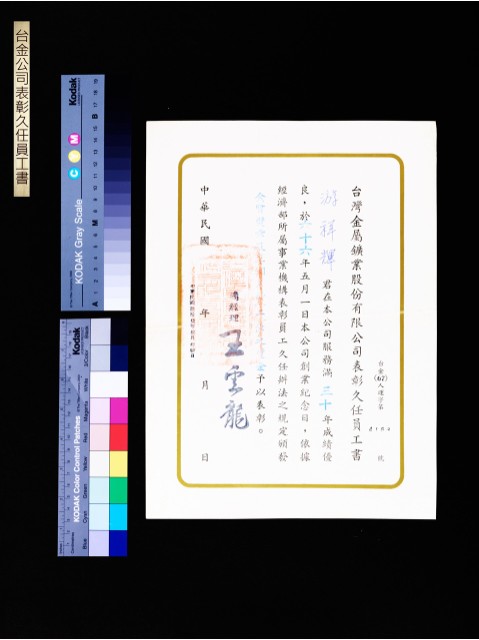 台金公司表彰久任員工書
台灣金屬鑛業股份有限公司表彰久任員工書
台金(67)人理字第 號
游祥輝 君在本公司服務滿 三十 年成績優
良,於 六十六 年五月一日本公司創業紀念日,依據
經濟部所屬事業機構表彰員工久任辦法之規定頒發
予以表彰。
總經理 王雲龍
中華民國 年 月 日
KODAK Gray Scale
Kodak
C Y M
A 1 2 3 4 5 6 M 8 9 10 11 12 13 14 15 B 17 18 19
KODAK Color Control Patches
Kodak
Blue Cyan Green Yellow Red Magenta White 3/Color Black